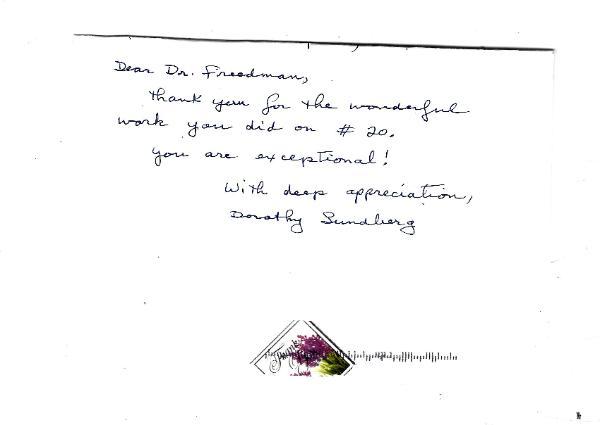 Dear Dr. Freedman,
Thank you for the wonderful
work you did on # 20.
You are exceptional!
With deep appreciation,
Dorothy Sundberg
Thank
You